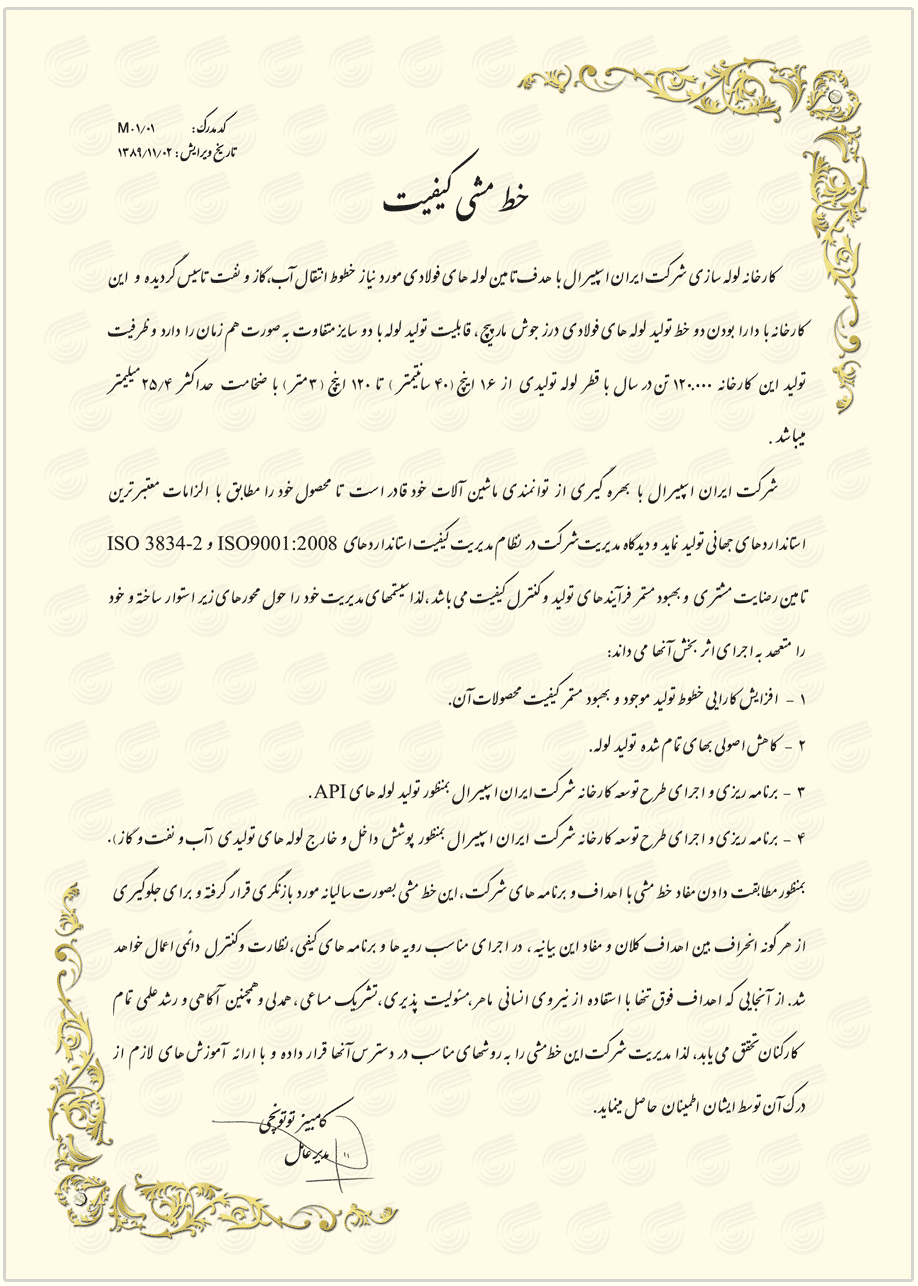 کد مدرک: M۰۱/۰۱
تاریخ ویرایش: ۱۳۸۹/۱۱/۰۲
خط مشی کیفیت
کارخانه لوله سازی شرکت ایران اسپیرال با هدف تامین لوله های فولادی مورد نیاز خطوط انتقال آب،گاز و نفت تاسیس گردیده و این
کارخانه با دارا بودن دو خط تولید لوله های فولادی درز جوش مارپیچ، قابلیت تولید لوله با دو سایز متفاوت به صورت هم زمان را دارد و ظرفیت
تولید این کارخانه ۱۲۰.۰۰۰ تن در سال با قطر لوله تولیدی از ۱۶ اینچ (۴۰ سانتیمتر) تا ۱۲۰ اینچ (۳متر) با ضخامت حداکثر ۲۵/۴ میلیمتر
میباشد.
شرکت ایران اسپیرال با بهره گیری از توانمندی ماشین آلات خود قادر است تا محصول خود را مطابق با الزامات معتبرترین
استانداردهای جهانی تولید نماید و دیدگاه مدیریت شرکت در نظام مدیریت کیفیت استانداردهای ISO9001:2008 و ISO 3834-2
تامین رضایت مشتری و بهبود مستمر فرآیندهای تولید و کنترل کیفیت می باشد،لذا سیستمهای مدیریت خود را حول محورهای زیر استوار ساخته و خود
را متعهد به اجرای اثر بخش آنها می داند:
۱ - افزایش کارایی خطوط تولید موجود و بهبود مستمر کیفیت محصولات آن.
۲ - کاهش اصولی بهای تمام شده تولید لوله.
۳ - برنامه ریزی و اجرای طرح توسعه کارخانه شرکت ایران اسپیرال بمنظور تولید لوله های API.
۴ - برنامه ریزی و اجرای طرح توسعه کارخانه شرکت ایران اسپیرال بمنظور پوشش داخل و خارج لوله های تولیدی (آب و نفت و گاز).
بمنظور مطابقت دادن مفاد خط مشی با اهداف و برنامه های شرکت،این خط مشی بصورت سالیانه مورد بازنگری قرار گرفته و برای جلوگیری
از هرگونه انحراف بین اهداف کلان و مفاد این بیانیه، در اجرای مناسب رویه ها و برنامه های کیفی،نظارت و کنترل دائمی اعمال خواهد
شد. از آنجایی که اهداف فوق تنها با استفاده از نیروی انسانی ماهر،مسئولیت پذیری،تشریک مساعی، همدلی و همچنین آگاهی و رشد علمی تمام
کارکنان تحقق می یابد، لذا مدیریت شرکت این خط مشی را به روشهای مناسب در دسترس آنها قرار داده و با ارائه آموزش های لازم از
درک آن توسط ایشان اطمینان حاصل مینماید.
کامبیز توتونچی
مدیر عامل